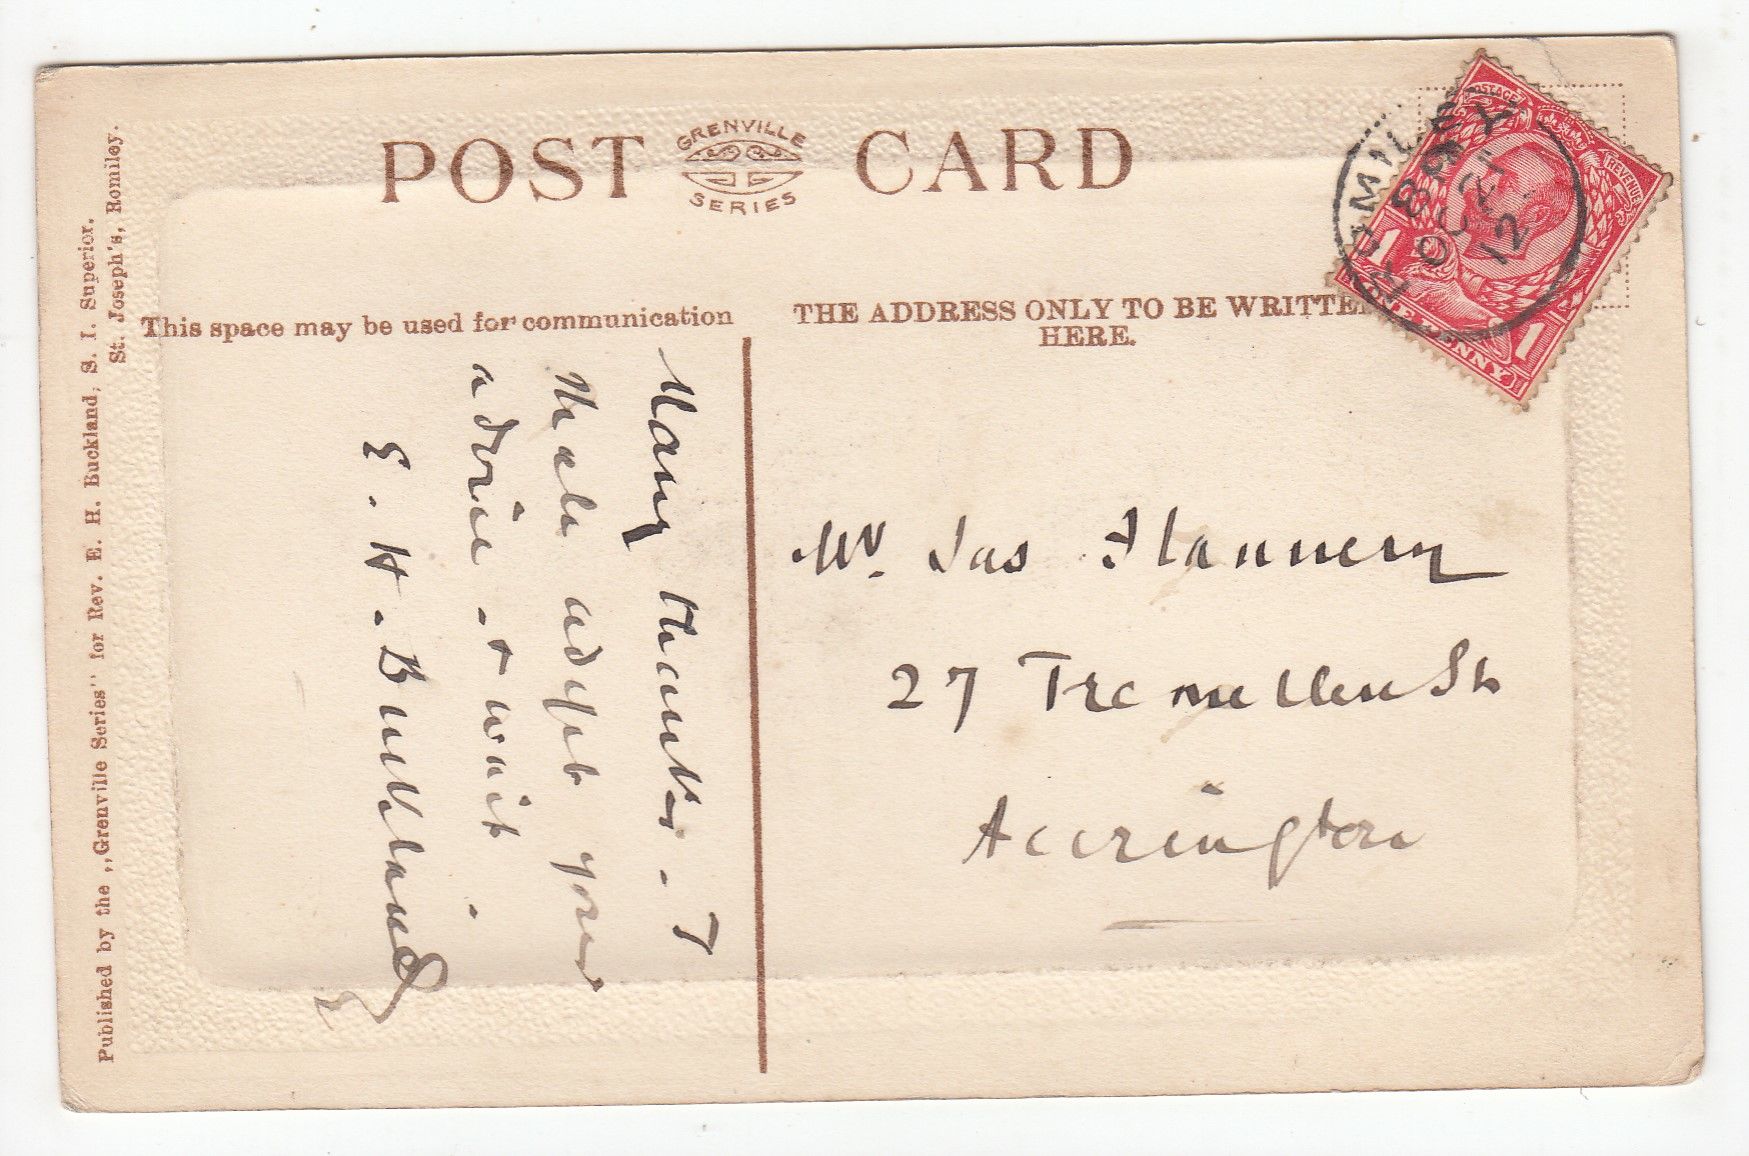 POST CARD
GRENVILLE
SERIES
This space may be used for communication
THE ADDRESS ONLY TO BE WRITTE
HERE.
POSTAGE
REVENUE
1
1
ONE PENNY
ROMILEY
OC 21
12
Many thanks. I
shale adopt your
advice & wait.
E. H. Buckland
Mr. Jas Flannery
27 Tremellen St
Accrington
Published by the ,,Grenville Series" for Rev. E. H. Buckland, S. I. Superior.
St. Joseph's, Romiley.